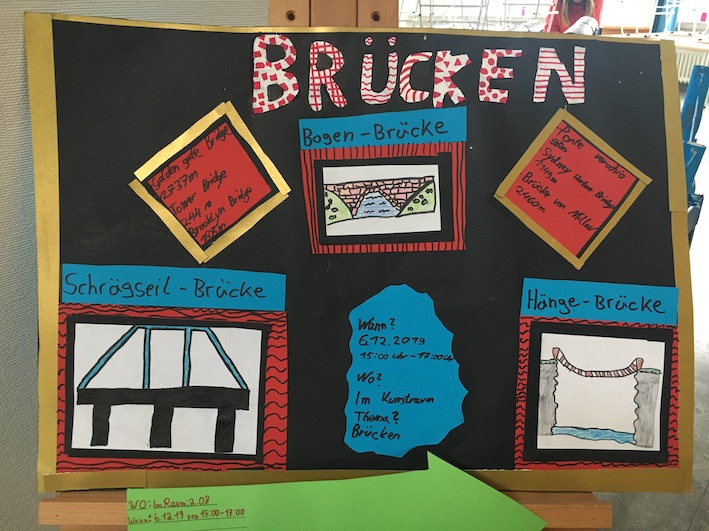 BRÜCKEN
Golden gate Bridge
2737m
Tower Bridge
244 m
Brooklyn Bridge
Bogen-Brücke
Ponte vecchio
Sydney Harbour Bridge
1149m
Brücke von Millau
2460m
Schrägseil-Brücke
Wann?
6.12.2019
15:00 Uhr - 17:00 Uhr
Wo?
Im Kunstraum
Thema?
Brücken
Hänge-Brücke
WO: Im Raum: 2.08
Wann: 6.12.19 15:00-17:00